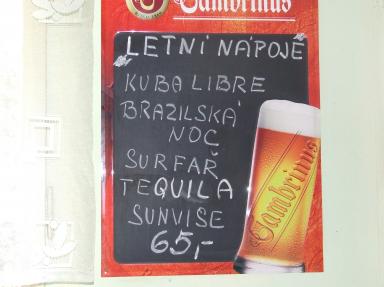 Gambrinus
LETNÍ NÁPOJE
KUBA LIBRE
BRAZILSKÁ
NOC
SURFAŘ
TEQUILA
SUNVISE
65,-
Gambrinus